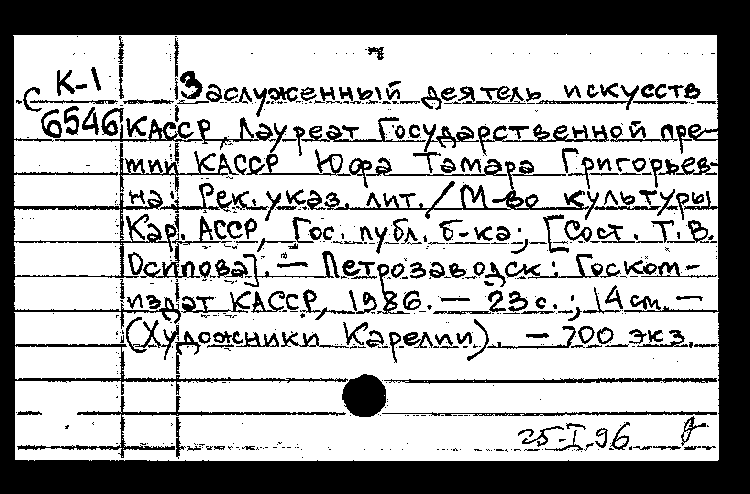 К-1 Заслуженный деятель искусств
С 6546 КАССР, Лауреат Государственной пре-
мии КАССР Юфа Тамара Григорьев-
на: Рек. указ. лит. / М-во культуры
Кар. АССР, Гос. публ. б-ка; [Сост. Т. В.
Осипова]. — Петрозаводск: Госком-
издат КАССР, 1986. — 23 с.; 14 см. —
(Художники Карелии). — 700 экз.
25-I-96